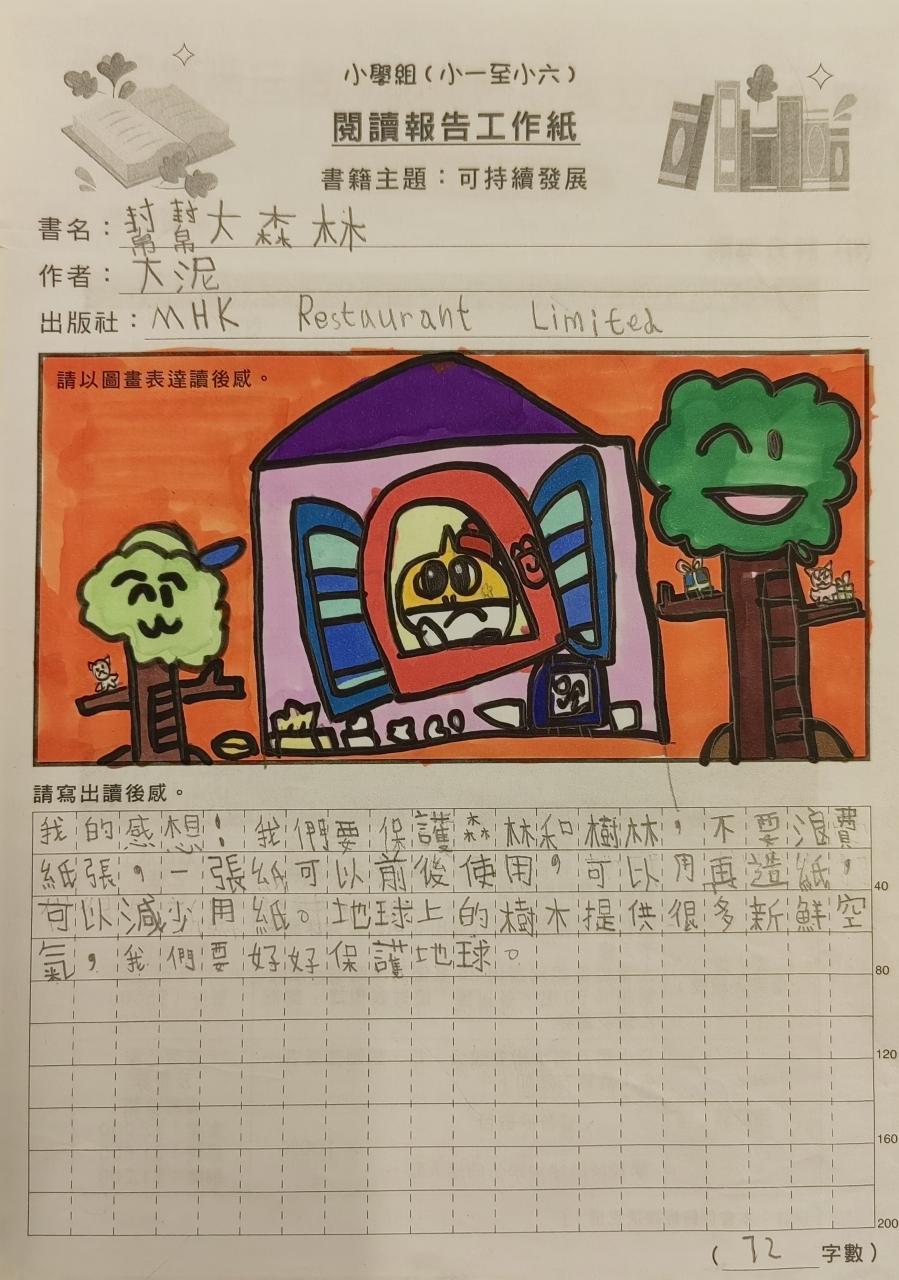 小學組（小一至小六）
閱讀報告工作紙
書籍主題：可持續發展
書名：幫幫大森林
作者：大泥
出版社：MHK Restaurant Limited
請以圖畫表達讀後感。
請寫出讀後感。
我的感想！我們要保護森林和樹林，不要浪費
紙張，一張紙可以前後使用，可以用再造紙，
40
可以減少用紙。地球上的樹木提供很多新鮮空
氣，我們要好好保護地球。
80
120
160
200
（72字數）